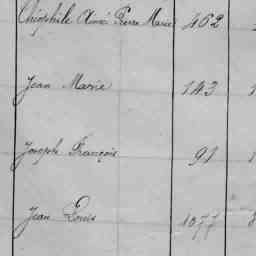 Théophile Aimé Pierre Marie 462
Jean Marie 143
Joseph François 91
Jean Louis 1077